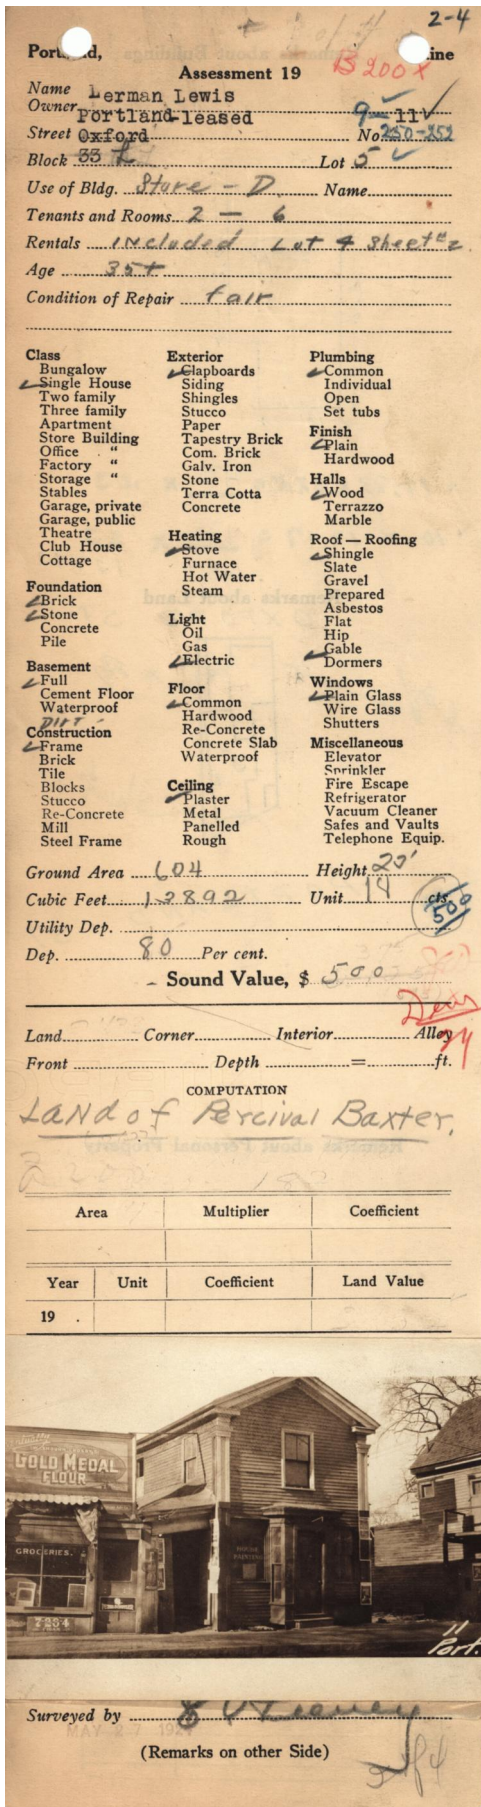 2-4
Portland, Maine
Assessment 19 B 200 X
Name Lerman Lewis
Owner Portland-leased 9-11
Street Oxford No 250-252
Block 33 L Lot 5
Use of Bldg. Store - D Name
Tenants and Rooms 2 - 6
Rentals included Lot 4 Sheet #2
Age 35+
Condition of Repair fair
Class
Bungalow
Single House
Two family
Three family
Apartment
Store Building
Office "
Factory "
Storage "
Stables
Garage, private
Garage, public
Theatre
Club House
Cottage
Foundation
Brick
Stone
Concrete
Pile
Basement
Full
Cement Floor
Waterproof
DIRT
Construction
Frame
Brick
Tile
Blocks
Stucco
Re-Concrete
Mill
Steel Frame
Exterior
Clapboards
Siding
Shingles
Stucco
Paper
Tapestry Brick
Com. Brick
Galv. Iron
Stone
Terra Cotta
Concrete
Heating
Stove
Furnace
Hot Water
Steam
Light
Oil
Gas
Electric
Floor
Common
Hardwood
Re-Concrete
Concrete Slab
Waterproof
Ceiling
Plaster
Metal
Panelled
Rough
Plumbing
Common
Individual
Open
Set tubs
Finish
Plain
Hardwood
Halls
Wood
Terrazzo
Marble
Roof — Roofing
Shingle
Slate
Gravel
Prepared
Asbestos
Flat
Hip
Gable
Dormers
Windows
Plain Glass
Wire Glass
Shutters
Miscellaneous
Elevator
Sprinkler
Fire Escape
Refrigerator
Vacuum Cleaner
Safes and Vaults
Telephone Equip.
Ground Area 604 Height 23'
Cubic Feet 13892 Unit 18 cts.
500
Utility Dep.
Dep. 80 Per cent.
Sound Value, $ 500
Land Corner Interior Alley
Front Depth = ft.
COMPUTATION
Land of Percival Baxter.
Area Multiplier Coefficient
Year Unit Coefficient Land Value
19 .
GOLD MEDAL
FLOUR
GROCERIES.
7-23-4
11
Port.
Surveyed by
MAY 27 192
(Remarks on other Side)